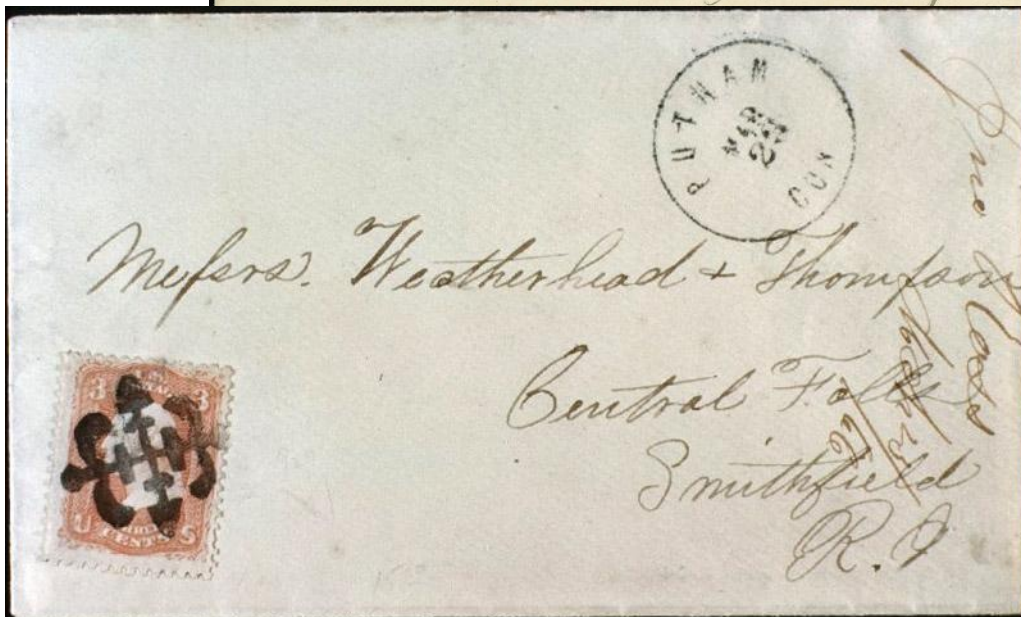 PUTNAM
MAR
CON
Messrs. Weatherhead & Thompson
Central Falls
Smithfield
R. I
3 3
U S
CENTS